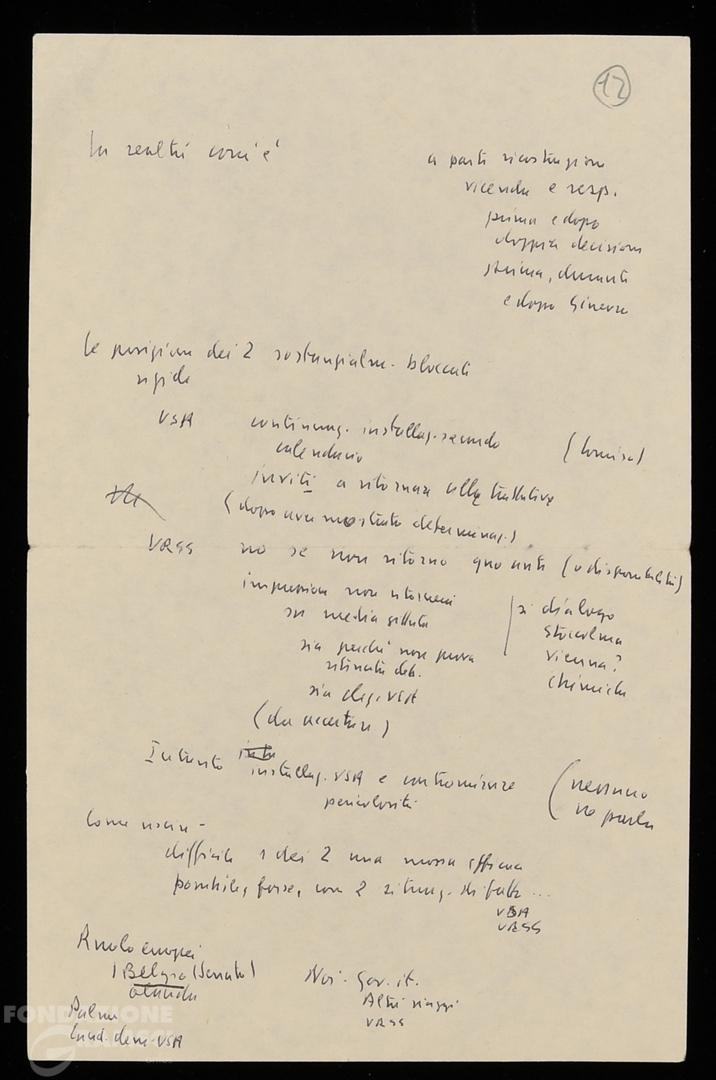 12
In realtà cos'è
a parte ricostruzione
vicenda e resp.
prima e dopo
doppia decisione
prima, durante
e dopo Ginevra
Le posizioni dei 2 sostanzialm. bloccati
rigide
USA continuaz. installaz. secondo (Comiso)
calendario
inviti a ritornare alla trattativa
(dopo aver mostrato determinaz.)
URSS no se non ritorno quo ante (o disponibilità)
impressione non
su media gittata
sia perché non
sia USA
(da accertare)
sì dialogo
Stoccolma
Vienna?
chimiche
Intanto installaz. USA e contromisure (nessuno
pericolosità ne parla
Come uscire -
difficile 1 dei 2 una mossa
possibile, forse, con 2 di fatto ...
USA
URSS
Ruolo europei
Belgio (Senato)
Olanda
Palme
Cand. dem. USA
Noi - Gov. it.
Altri viaggi
URSS
FONDAZIONE
GRAMSCI